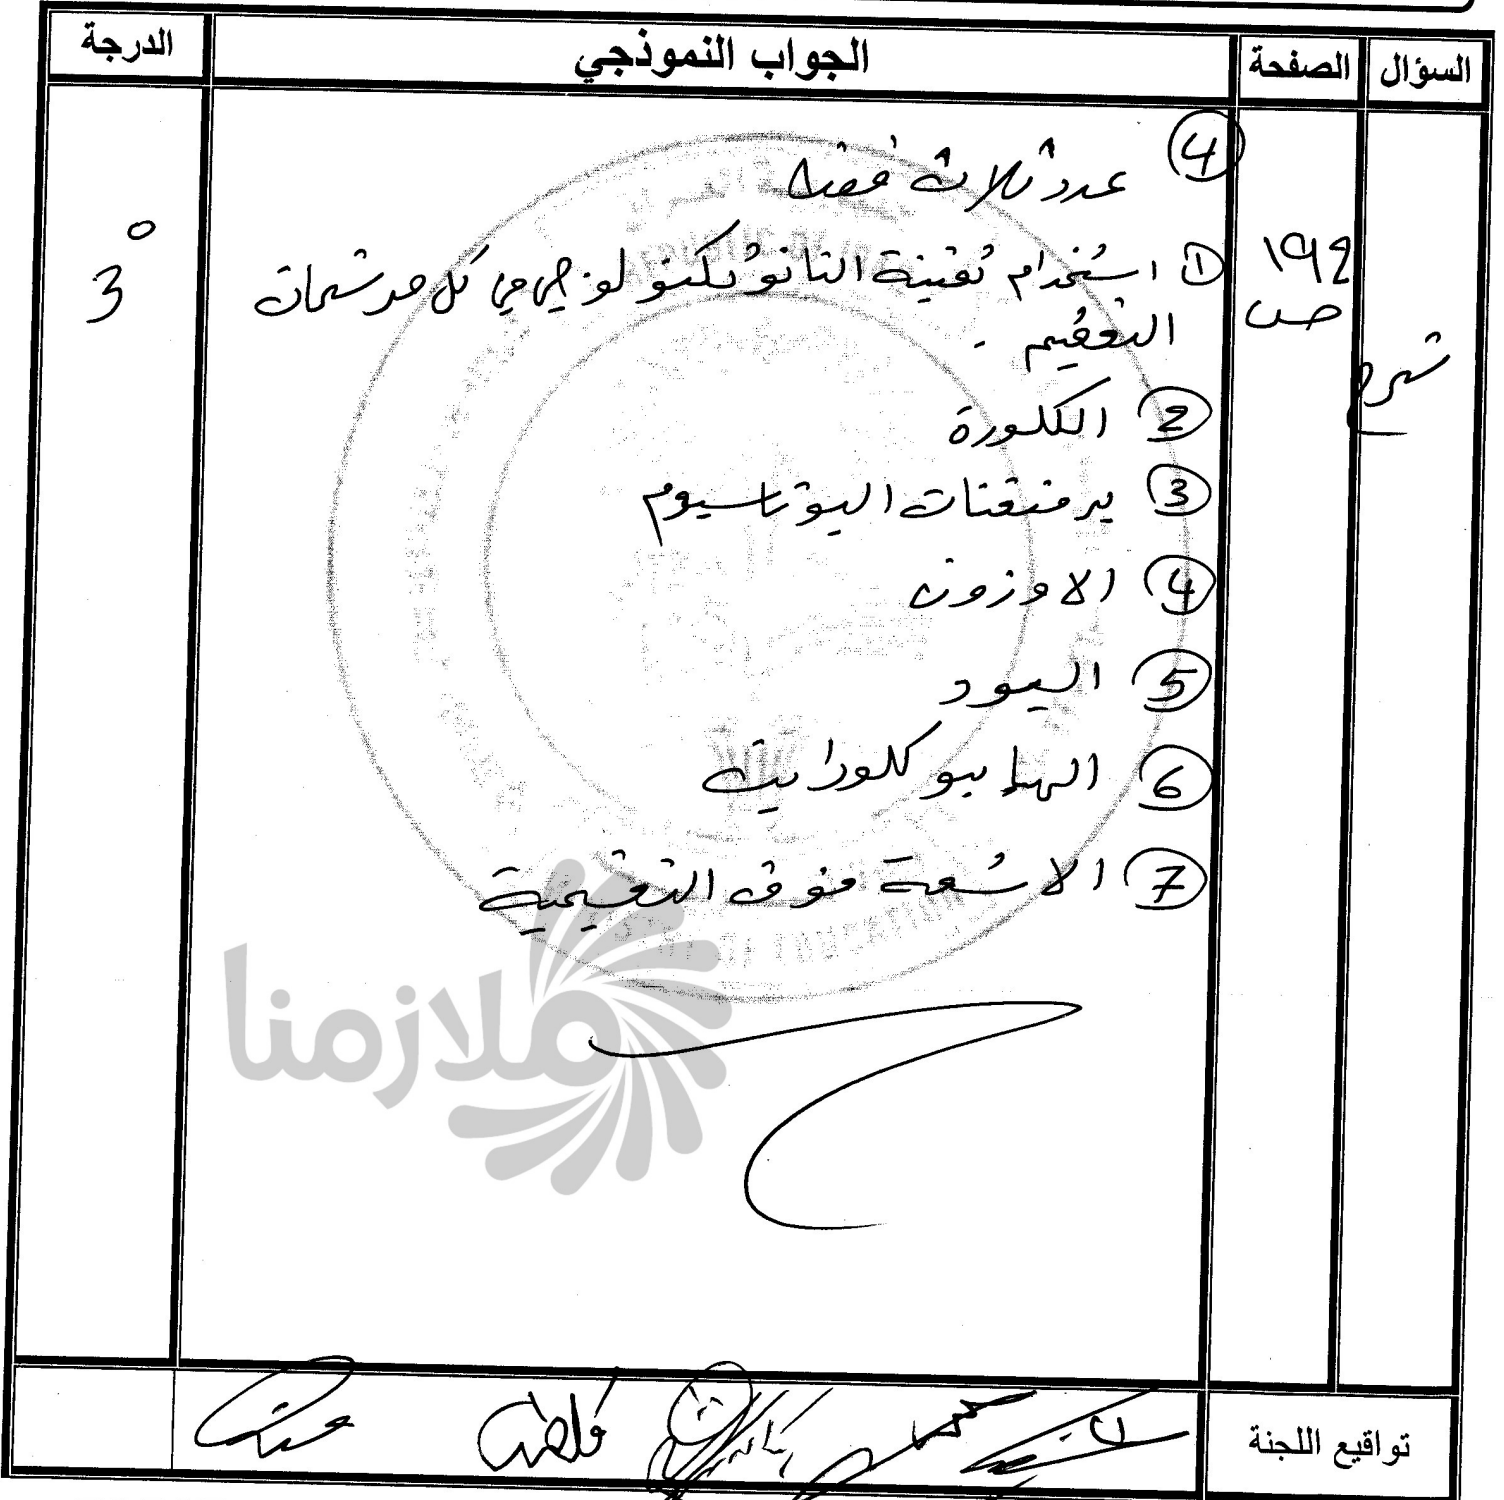 السؤال الصفحة الجواب النموذجي الدرجة
④ عدد ثلاث فقط
① استخدام تقنية النانو تكنولوجي في كل مرشحات
التعقيم .
② الكلورة
③ برمنقنات البوتاسيوم
④ الاوزون
⑤ اليود
⑥ الهايبو كلورايت
⑦ الاشعة فوق البنفسجية
١٩٤
ص
شرح
3°
ملازمنا
تواقيع اللجنة